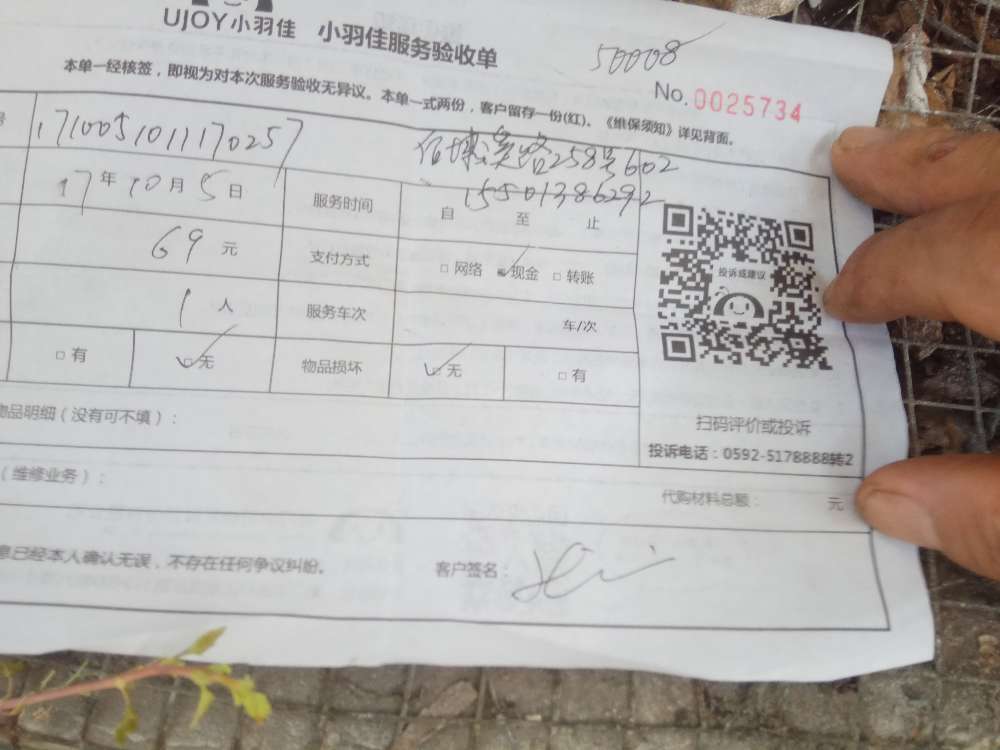 UJOY小羽佳 小羽佳服务验收单
50008
本单一经核签，即视为对本次服务验收无异议。本单一式两份，客户留存一份(红)、《维保须知》详见背面。
No.0025734
号 171005101117​0257 路258号602
15501386292
17年10月5日 服务时间 自 至 止
69元 支付方式 □网络 ☑现金 □转账
1人 服务车次 车/次
□有 ☑无 物品损坏 ☑无 □有
投诉或建议
物品明细（没有可不填）：
扫码评价或投诉
投诉电话：0592-5178888转2
（维修业务）： 代购材料总额： 元
息已经本人确认无误，不存在任何争议纠纷。 客户签名：